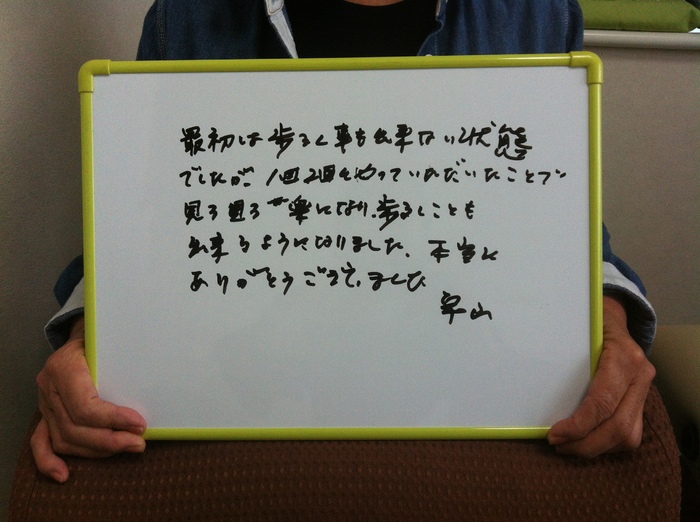 最初は歩く事も出来ない状態
でしたが、1回2回とやっていただいたことで
見る見る 楽になり、歩くことも
出来るようになりました。本当に
ありがとうございました
早山